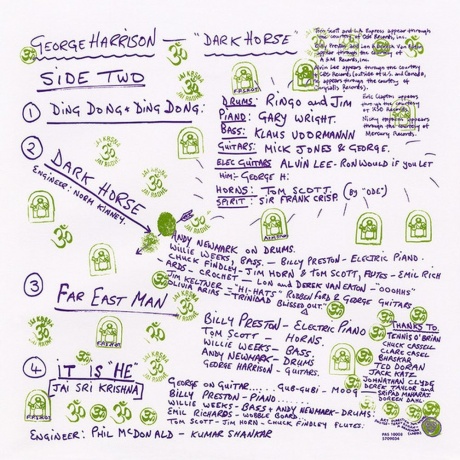 GEORGE HARRISON — "DARK HORSE"
SIDE TWO
Tom Scott and L.A. Express appear through the courtesy of Ode Records, Inc.
Billy Preston and Lon & Derrek Van Eaton appear through the courtesy of A&M Records, Inc.
Alvin Lee appears through the courtesy of CBS Records (outside of U.S. and Canada, he appears through the courtesy of Chrysalis Records).
Eric Clapton appears through the courtesy of RSO Records.
Nicky appears through the courtesy of Mercury Records.
① DING DONG * DING DONG:
DRUMS: RINGO and JIM
PIANO: GARY WRIGHT.
BASS: KLAUS VOORMANN
GUITARS: MICK JONES & GEORGE.
ELEC GUITARS ALVIN LEE - RON WOULD IF YOU LET
HIM:- GEORGE H:
HORNS: TOM SCOTT. (By "ODE")
SPIRIT: SIR FRANK CRISP.
② DARK HORSE
ENGINEER: NORM KINNEY.
ANDY NEWMARK ON DRUMS.
WILLIE WEEKS, BASS. — BILLY PRESTON - ELECTRIC PIANO.
CHUCK FINDLEY - JIM HORN & TOM SCOTT, FLUTES - EMIL RICH
-ARDS - CROCHET - LON and DEREK VAN EATON - "OOOHHS"
JIM KELTNER - "HI-HATS" ROBBEN FORD & GEORGE GUITARS
OLIVIA ARIAS - "TRINIDAD BLISSED OUT."
③ FAR EAST MAN
BILLY PRESTON - ELECTRIC PIANO
TOM SCOTT - HORNS.
WILLIE WEEKS - BASS.
ANDY NEWMARK - DRUMS
GEORGE HARRISON - GUITARS.
THANKS TO
TENNIS O'BRIAN
CHUCK CASSEL
CLARE CASEL
BHASKAR
TED DORAN
JACK KATZ
JOHNATHAN CLYDE
DEREK TAYLOR and
SRIPAD MAHARAJ
DOREEN DAHL.
④ iT IS "HE"
JAI SRI KRISHNA
GEORGE ON GUITAR....... GUB-GUBI - MOOG
BILLY PRESTON - PIANO............
WILLIE WEEKS - BASS & ANDY NEWMARK - DRUMS:
EMIL RICHARDS - WOBBLE BOARD........
TOM SCOTT - JIM HORN - CHUCK FINDLEY FLUTES.
ENGINEER: PHIL McDONALD - KUMAR SHANKAR
FPSHOT
ॐ
PAS 10008